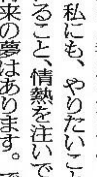 私にも、やりたいこ
ること、情熱を注いで
来の夢はあります。